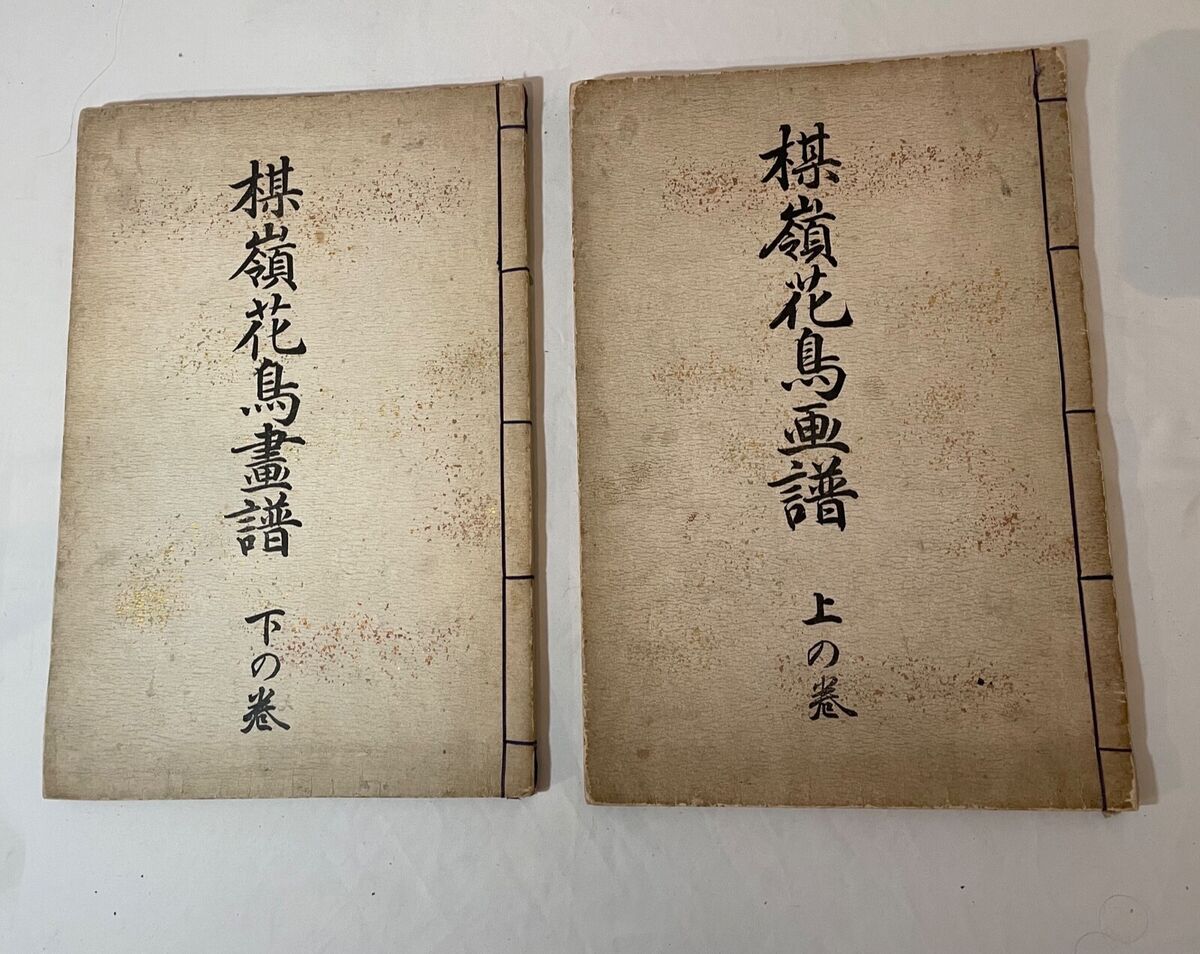 楳嶺花鳥画譜
上の巻
楳嶺花鳥畫譜
下の巻